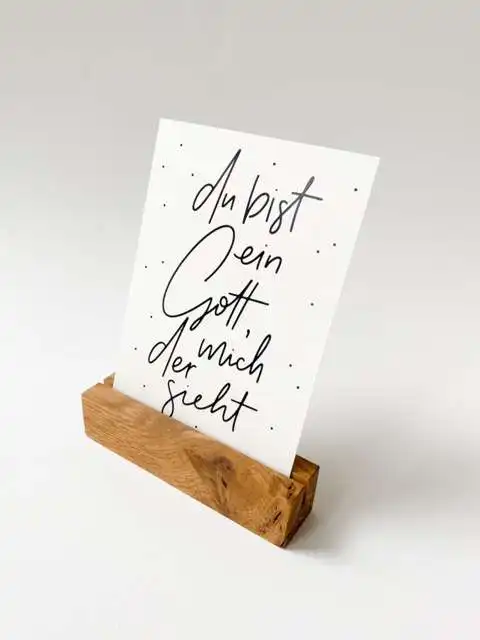 du bist
ein
Gott,
der mich
sieht